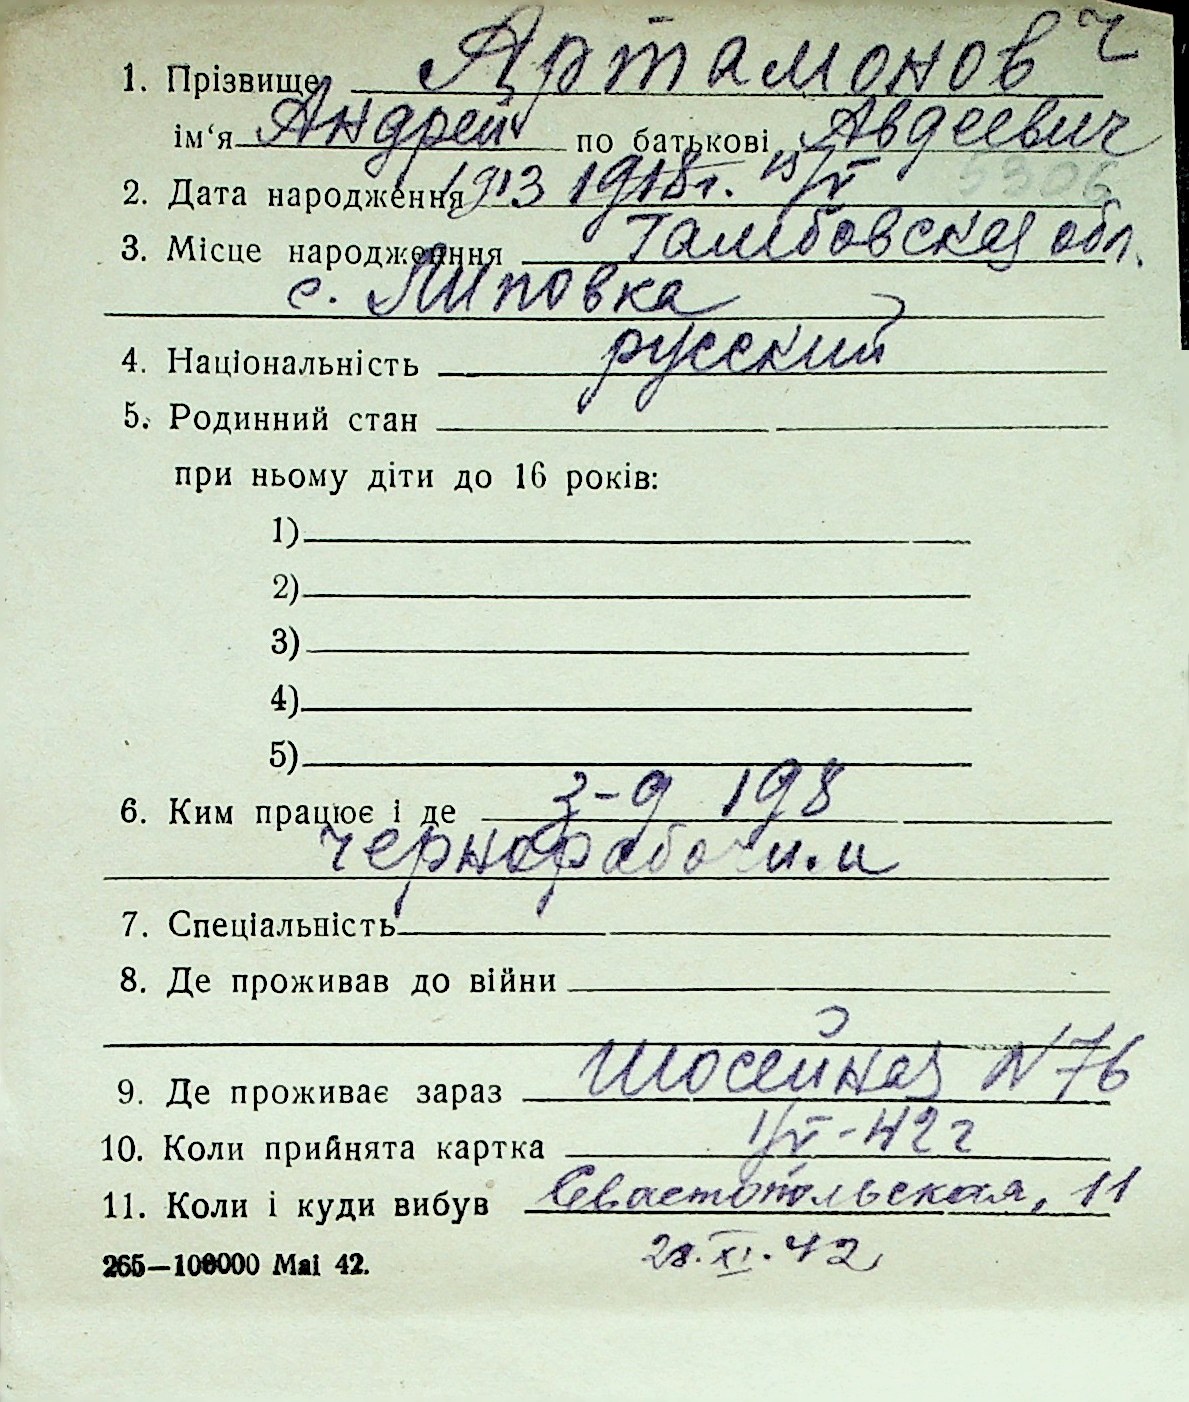 ч
1. Прізвище Артамонов
ім'я Андрей по батькові Авдеевич
2. Дата народження 1913 1918г. 15/V
5306
3. Місце народженння Тамбовская обл.
с. Липовка
4. Національність русский
5. Родинний стан
при ньому діти до 16 років:
1)
2)
3)
4)
5)
6. Ким працює і де З-д 198
чернорабочим
7. Спеціальність
8. Де проживав до війни
9. Де проживає зараз Шосейная N 76
10. Коли прийнята картка 1/V-42 г
11. Коли і куди вибув Севастопольская, 11
265—100000 Mai 42. 28.XI.42